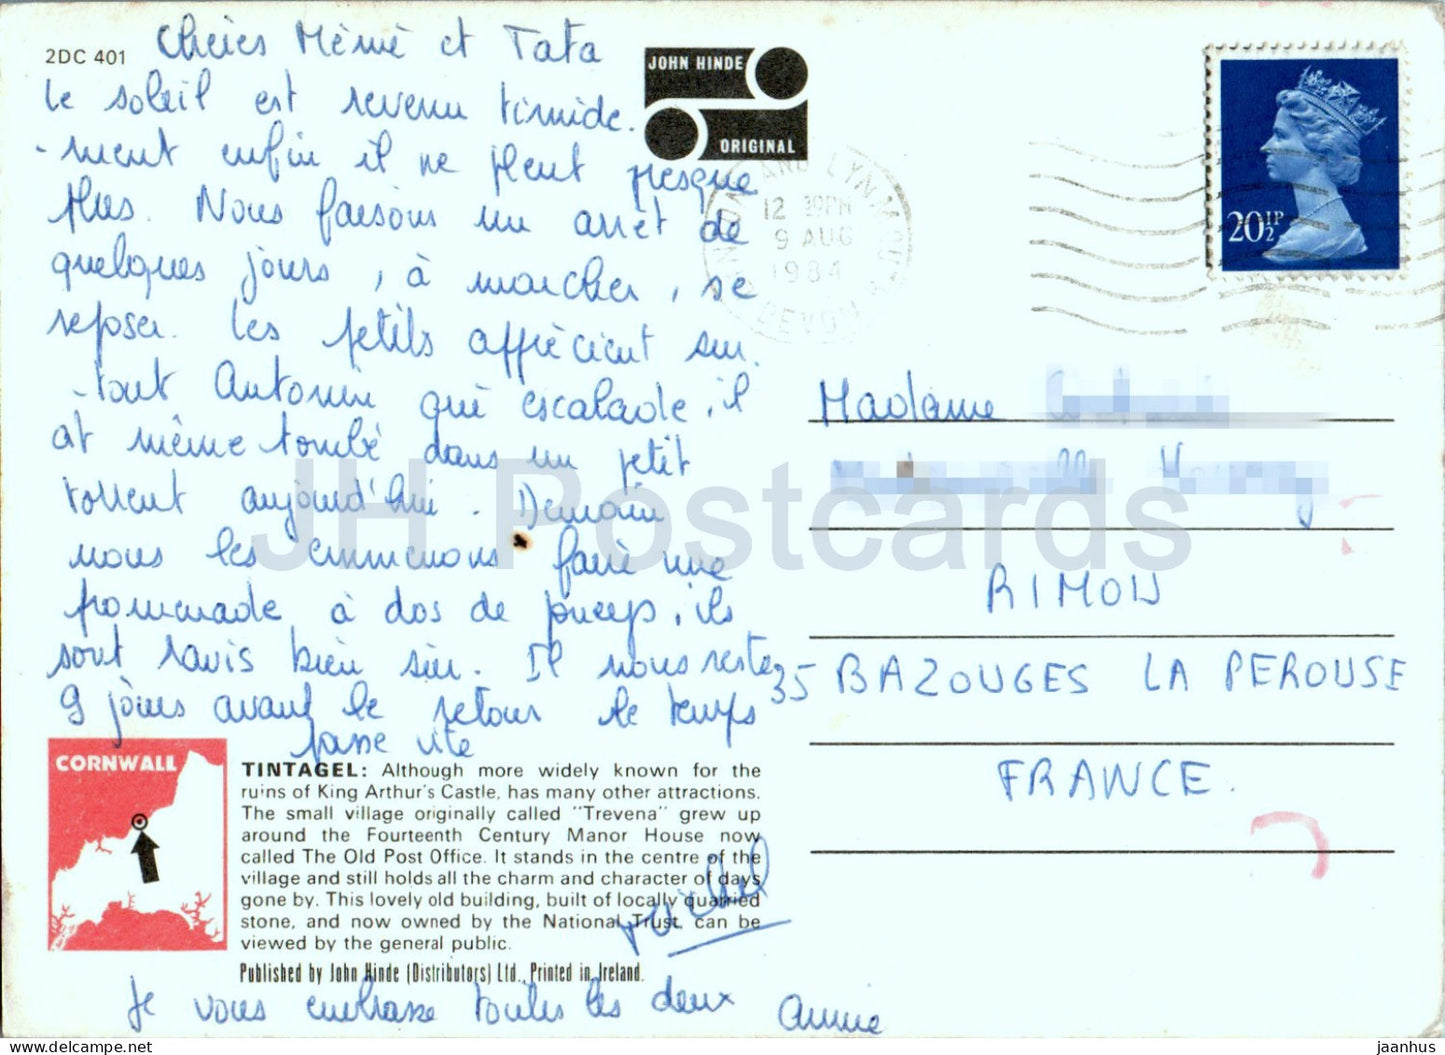 2DC 401
Chères Mémé et Tata
Le soleil est revenu timide.
-ment enfin il ne pleut presque
plus. Nous faisons un arrêt de
quelques jours, à marcher, se
reposer. Les petits apprécient sur.
-tout Antonin qui escalade, il
at même tombé dans un petit
torrent aujourd'hui. Demain
nous les emmenons faire une
promenade à dos de poneys, ils
sont ravis bien sûr. Il nous reste
9 jours avant le retour le temps
passe vite
JOHN HINDE
ORIGINAL
AND LYNM
12 30PM
9 AUG
1984
DEVON
20½P
Madame
RIMOU
35 BAZOUGES LA PEROUSE
FRANCE.
CORNWALL
TINTAGEL: Although more widely known for the
ruins of King Arthur's Castle, has many other attractions.
The small village originally called "Trevena" grew up
around the Fourteenth Century Manor House now
called The Old Post Office. It stands in the centre of the
village and still holds all the charm and character of days
gone by. This lovely old building, built of locally quarried
stone, and now owned by the National Trust, can be
viewed by the general public.
Published by John Hinde (Distributors) Ltd., Printed in Ireland.
Michel
Je vous embrasse toutes les deux
Annie
JH Postcards
© delcampe.net
jaanhus